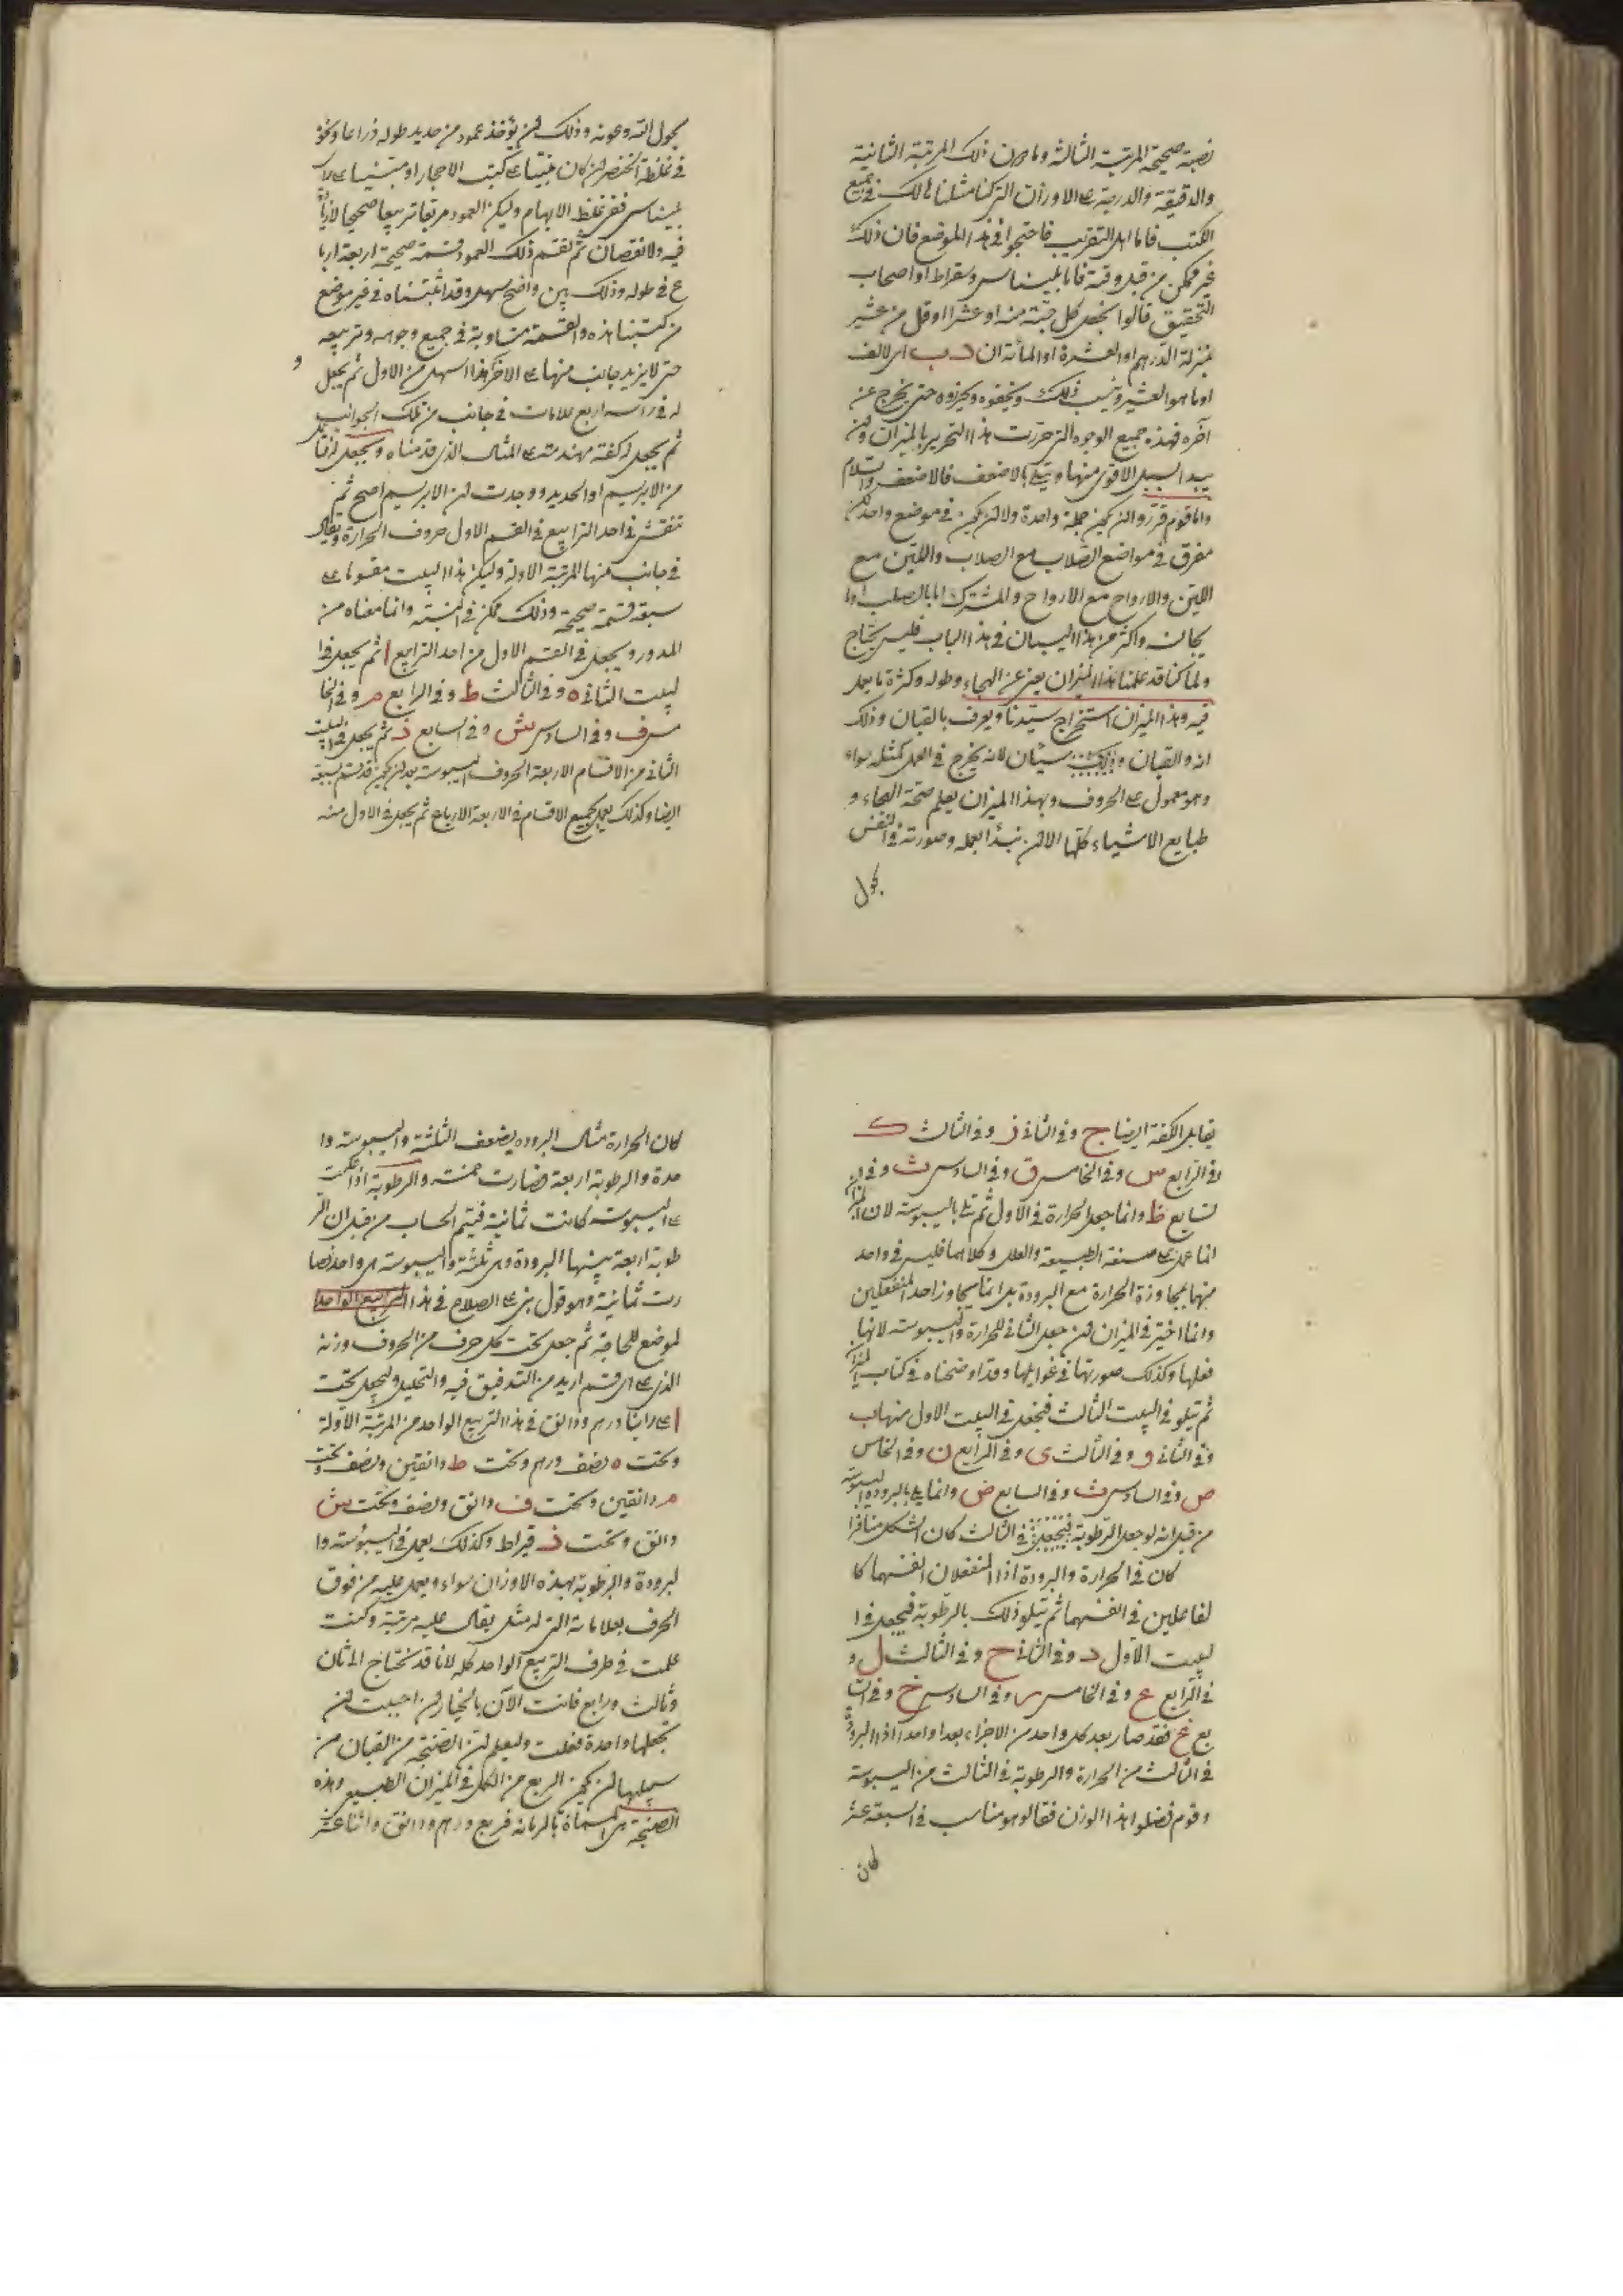 نصبة صحيحة المرتبة الثالثة وما دون ذلك المرتبة الثانية
والدقيقة والدرجة على الاوزان التى كنا مثلناها لك فى جميع
الكتب فاما اهل التقريب فاحتجوا فى هذا الموضع فان ذلك
غير ممكن من قبل وقته فاما بليناس وسقراط او اصحاب
التحقيق قالوا كل حبة منه او عشرا او قل من عشير
بمنزلة الدرهم او العشرة او المائة ان د ب الى الالف
او ما هو العشير وينسب ذلك ويخففوه ويحرزوه حتى يخرج عن
آخره فهذه جميع الوجوه التى حررت هذا التحرير بالميزان وان
يبدا السبيل الاقوى منها ويتلى بالاضعف فالاضعف والسلام
واما قوم قرروا ان يكون جملة واحدة ولا ان يكون فى موضع واحد لكن
مفرق فى مواضع الصلاب مع الصلاب واللين مع
اللين والارواح مع الارواح والمشترك اما بالصلب او ما
يجانسه واكثر من هذا البيان فى هذا الباب فليس يحتاج
ولما كنا قد علمنا هذا الميزان يغنى عن الهجاء وطوله وكثرة ما يعمل
فيه وهذا الميزان استخراج سيدنا ويعرف بالقبان وذلك
انه والقبان وذلك سيّان لانه يخرج فى العمل كمثله سواء
وهو معمول على الحروف وبهذا الميزان يعلم صحة الهجاء و
طبايع الاشياء كلها الا ان نبدأ بعمله وصورته فى النفس
بحول
بحول الله وعونه وذلك ان يؤخذ عمود من حديد طوله ذراعا ونحو
فى غلظه الخنصر ان كان مبنيا على كتب الاحجار او مبنيا على راى
بليناس ففى غلظ الابهام وليكن العمود مربعا تربيعا صحيحا لا زيادة
فيه ولا نقصان ثم تقسم ذلك العمود قسمة صحيحة اربعة اربا
ع فى طوله وذلك بين واضح سهل وقد اثبتناه فى غير موضع
من كتبنا هذه والقسمة متساوية فى جميع وجوهه وتربيعه
حتى لا يزيد جانب منها على الاخر هذا اسهل من الاول ثم يجعل
له فى راسه اربع علامات فى جانب من تلك الجوانب
ثم يجعل له كفة مهندمة على المثال الذى قدمناه ويجعل
من الابريسم او الحديد ووجدت ان الابريسم اصح ثم
تنقش فى احد الترابيع فى القسم الاول حروف الحرارة ويقال
فى جانب منها المرتبة الاولة وليكن هذا البيت مقسوما على
سبعة قسمة صحيحة وذلك ممكن فى النسبة وانما معناه من
المدور ويجعل فى القسم الاول من احد الترابيع ا ثم يجعل فى ا
لبيت الثانى ه وفى الثالث ط وفى الرابع م وفى الخا
مس ف وفى السادس ش وفى السابع ذ ثم يجعل فى البيت
الثانى من الاقسام الاربعة الحروف اليبوسة بعد ان يكون قد قسم بسبعة
ايضا وكذلك يعمل بجميع الاقسام فى الاربعة الارباع ثم يجعل فى الاول منه
يقابل الكفة ايضا ج وفى الثانى ز وفى الثالث ك
وفى الرابع س وفى الخامس ق وفى السادس ث وفى ا
لسابع ظ وانما جعل الحرارة فى الاول ثم تلى باليبوسة لان الميزان
انما عمل على صنعة الطبيعة والعلل وكلاهما فليس فى واحد
منهما مجاوزة الحرارة مع البرودة بل انما يجاوز احد المنفعلين
وانما اختير فى الميزان ان جعل الثانى للحرارة واليبوسة لانها
فعلها وكذلك صورتها فى غوايلها وقد اوضحناه فى كتاب الميزان
ثم تتلو فى البيت الثالث فيجعل فى البيت الاول منها ب
وفى الثانى و وفى الثالث ى وفى الرابع ن وفى الخامس
ص وفى السادس ت وفى السابع ض وانما تلى بالبرودة اليبوسة
من قبل انه لو جعل الرطوبة فيجعل فى الثالث كان الشكل متنافرا
كان فى الحرارة والبرودة اذا المنفعلان انفسهما كا
لفاعلين فى انفسهما ثم تتلو ذلك بالرطوبة فيجعل فى ا
لبيت الاول د وفى الثانى ح وفى الثالث ل و
فى الرابع ع وفى الخامس ر وفى السادس خ وفى السا
بع غ فقد صار بعد كل واحد من الاجزاء بعدا واحدا اذا البرودة
فى الثالث من الحرارة والرطوبة فى الثالث من اليبوسة
وقوم فضلوا هذا الوزن فقالوا هو مناسب فى السبعة عشر
كان
كان الحرارة مثال البرودة يضعف الثلثة واليبوسة وا
حدة والرطوبة اربعة فصارت خمسة والرطوبة اذا حملت
على اليبوسة كانت ثمانية فيتم الحساب من قبل ان الر
طوبة اربعة بينها البرودة وهى ثلثة واليبوسة هى واحد فصا
رت ثمانية وهو قول بنى على الصلاح فى هذا التربيع الواحد
لموضع للحاجة ثم جعل تحت كل حرف من الحروف وزنه
الذى على اى قسم اريد من التدقيق فيه والتحليل وليجعل تحت
ا على راينا درهم ودانق فى هذا التربيع الواحد من المرتبة الاولة
وتحت ه نصف درهم وتحت ط دانقين ونصف وتحت
م دانقين وتحت ف دانق ونصف وتحت ش
دانق وتحت ذ قيراط وكذلك يعمل فى اليبوسة وا
لبرودة والرطوبة بهذه الاوزان سواء ويعمل عليه من فوق
الحرف بعلاماته التى له مثل يقال عليه مرتبة وكنت
علمت فى طرف التربيع الواحد كله لانا قد نحتاج الى ثان
وثالث ورابع فانت الآن بالخيار ان احببت ان
تجعلها واحدة فعلت وليعلم ان الصنجة من القبان من
سبيلها ان يكون الربع من الكل فى الميزان الطبيعى وهذه
الصنجة هى المسماة بالرمانة فربع درهم ودانق واثنا عشر